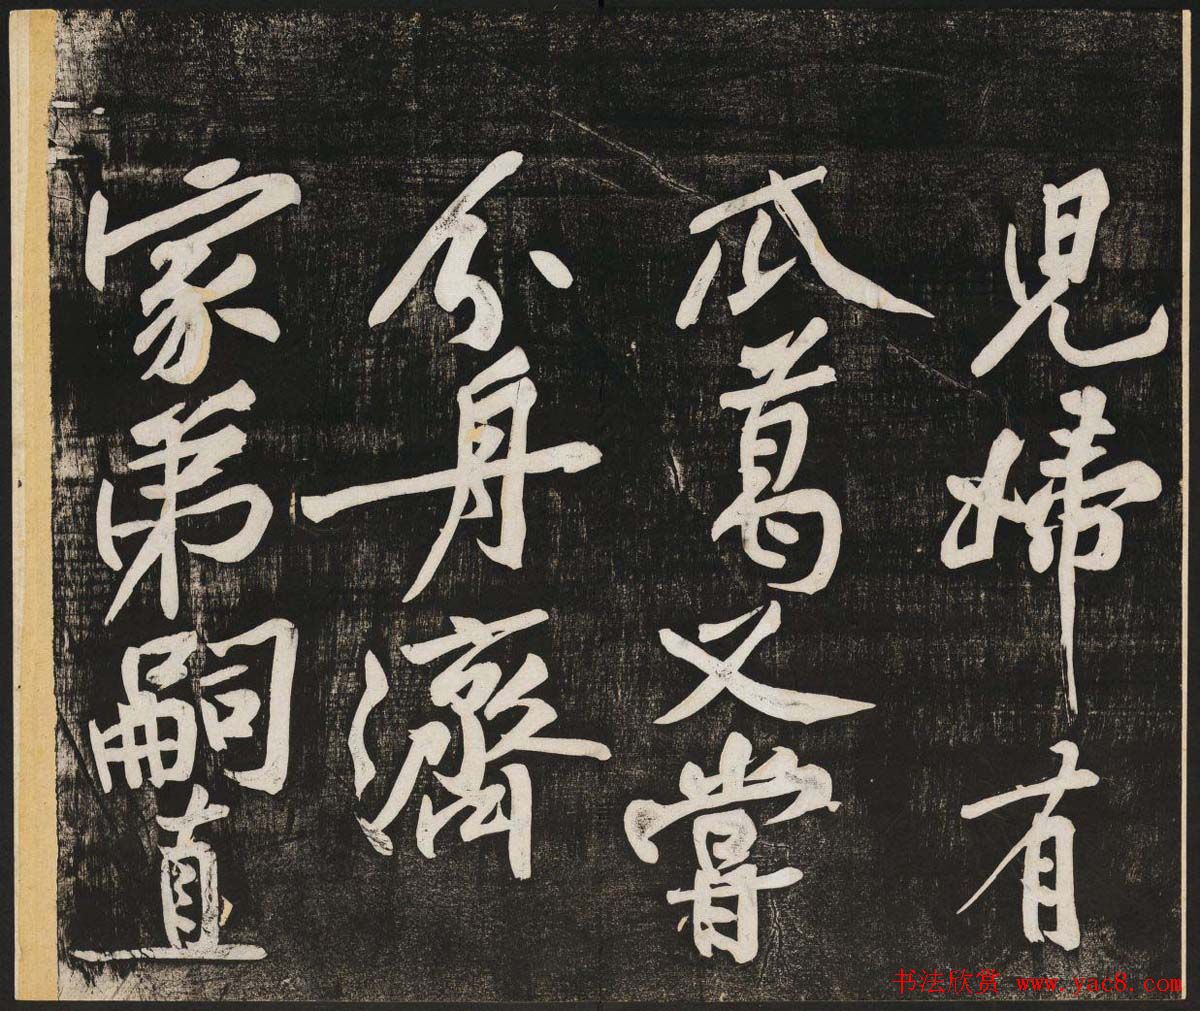 兒婦有
瓜葛又嘗
分舟濟
家弟嗣直
书法欣赏 www.yac8.com